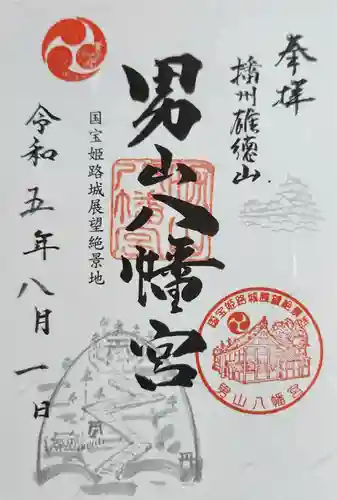 奉拝
播州雄徳山
男山八幡宮
国宝姫路城展望絶景地
令和五年八月一日
国宝姫路城展望絶景所
男山八幡宮